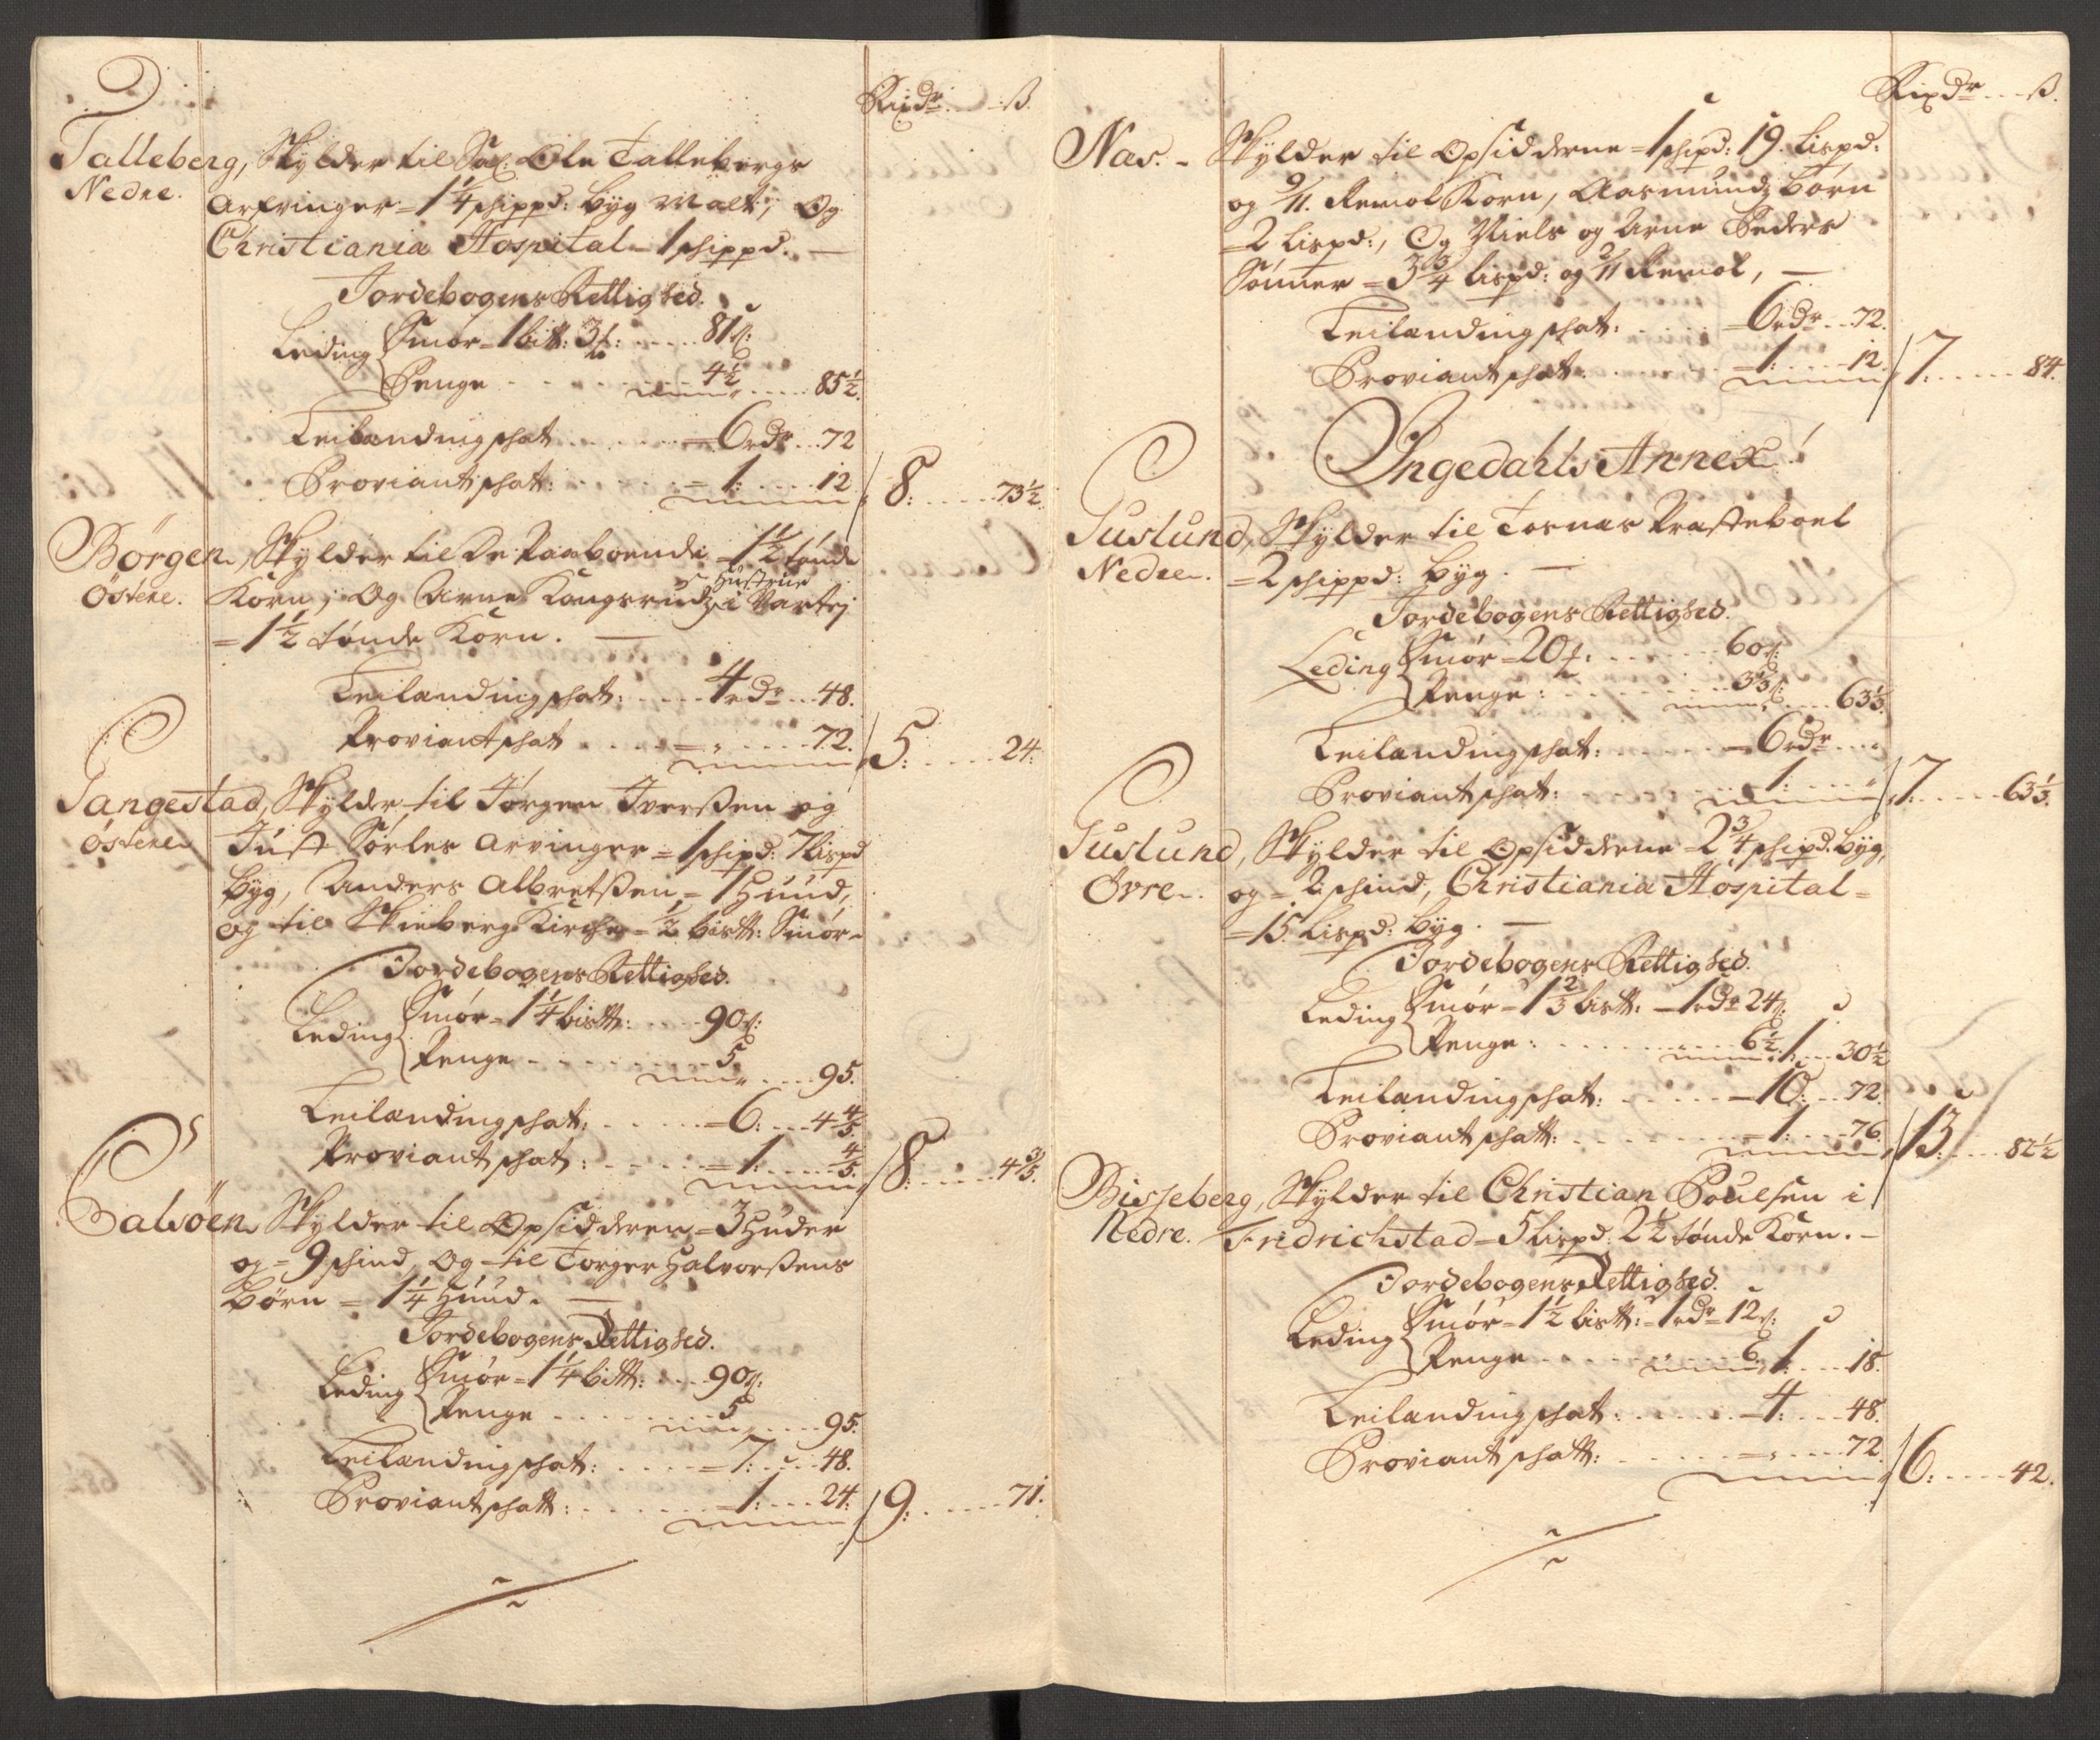 Rixdr ß.
Talleberg, Skylder til Sal: Ole Tallebergs
Nedre. Arfvinger = 1 1/4 schippd: Byg Malt; Og
Christiania Hospital = 1 schippd. —
Jordebogens Rettighed.
Leding Smør = 1 bitt: 3 ... 81 ß:
Penge 4 1/2 85 1/2.
Leilændingschat = 6 rdr 72
Proviantschat: = 1: 12 8: 73 1/2.
Börgen, Skylder til De Paaboende = 1 1/2 tønde
Östere. Korn; Og Arne Kongsruds Hustrue i Vartej
= 1 1/2 tønde Korn. —
Leilændingschat: 4 rdr 48.
Proviantschat = " 72. 5: 24:
Tangestad, Skylder til Jørgen Iverßen og
östere Just Sørles Arvinger = 1 schipd: 7 Lispd
Byg, Anders Albretßen = 1 Huud,
og til Skieberg Kirche = 1/2 bistt: Smør —
Jordebogens Rettighed.
Leding Smør = 1 1/4 bistt: 90 ß:
Penge 5 95.
Leilændingschat: = 6: 4 4/5.
Proviantschat: = 1: 4/5. 8: 4 3/5.
Galsöen Skylder til Opsidderen = 3 Huder
og = 9 schind, Og til Torger Halvorßens
Børn = 1 1/4 Huud. —
Jordebogens Rettighed.
Leding Smør = 1 1/4 bitt: 90 ß:
Penge 5 95.
Leilændingschat: = 7: 48.
Proviantschatt: = 1: 24: 9: 71.
Rixdr ß.
Næs. - Skylder til Opsidderne = 1 schipd: 19 Lispd:
og 9/11. Remol Korn, Aasmunds Børn
= 2 Lispd:, Og Niels og Arne Peders
Sønner = 3 3/4 Lispd: og 2/11 Remol, —
Leilændingschat: = 6 rdr 72.
Proviantschat: = 1: 12. 7: 84.
Ingedahls Annex!
Tuslund, Skylder til Tosnæs Præsteboel
Nedre. = 2 schippd: Byg. —
Jordebogens Rettighed.
Leding Smør = 20 ...: 60 ß:
Penge: 3 1/3 ß: 63 1/3.
Leilændingschat: = 6 rdr
Proviantschat: 1: " 7: 63 1/3.
Tuslund, Skylder til Opsidderne = 2 3/4 schipd. Byg,
Övre. og = 2 schind, Christiania Hospital =
= 15 Lispd: Byg. —
Jordebogens Rettighed.
Leding Smør = 1 2/3 bistt: = 1 rdr 24 ß:
Penge: 6 1/2 1: 30 1/2
Leilændingschat: = 10: 72.
Proviantschatt: = 1: 76. 13: 82 1/2
Bisseberg, Skylder til Christian Poulsen i
Nedre. Fridrichstad = 5 Lispd: 2 1/2 tønde Korn. —
Jordebogens Rettighed.
Leding Smør = 1 1/2 bistt: = 1 rdr 12 ß:
Penge 6 1: 18.
Leilændingschat: = 4: 48.
Proviantschatt: = " 72. 6: 42.